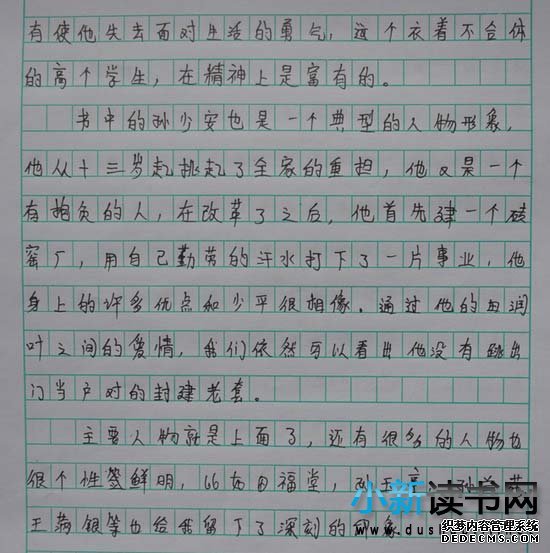 有使他失去面对生活的勇气，这个衣着不合体
的高个学生，在精神上是富有的。
书中的孙少安也是一个典型的人物形象，
他从十三岁起挑起了全家的重担，他又是一个
有抱负的人，在改革了之后，他首先建一个砖
窑厂，用自己勤劳的汗水打下了一片事业，他
身上的许多优点和少平很相像。通过他的和润
叶之间的爱情，我们依然可以看出他没有跳出
门当户对的封建老套。
主要人物就是上面了，还有很多的人物也
很个性签鲜明，比如田福堂，孙玉亭
王满银等也给我留下了深刻的印象
小新读书网
www.dus
织梦内容管理系统
DEDECMS.COM